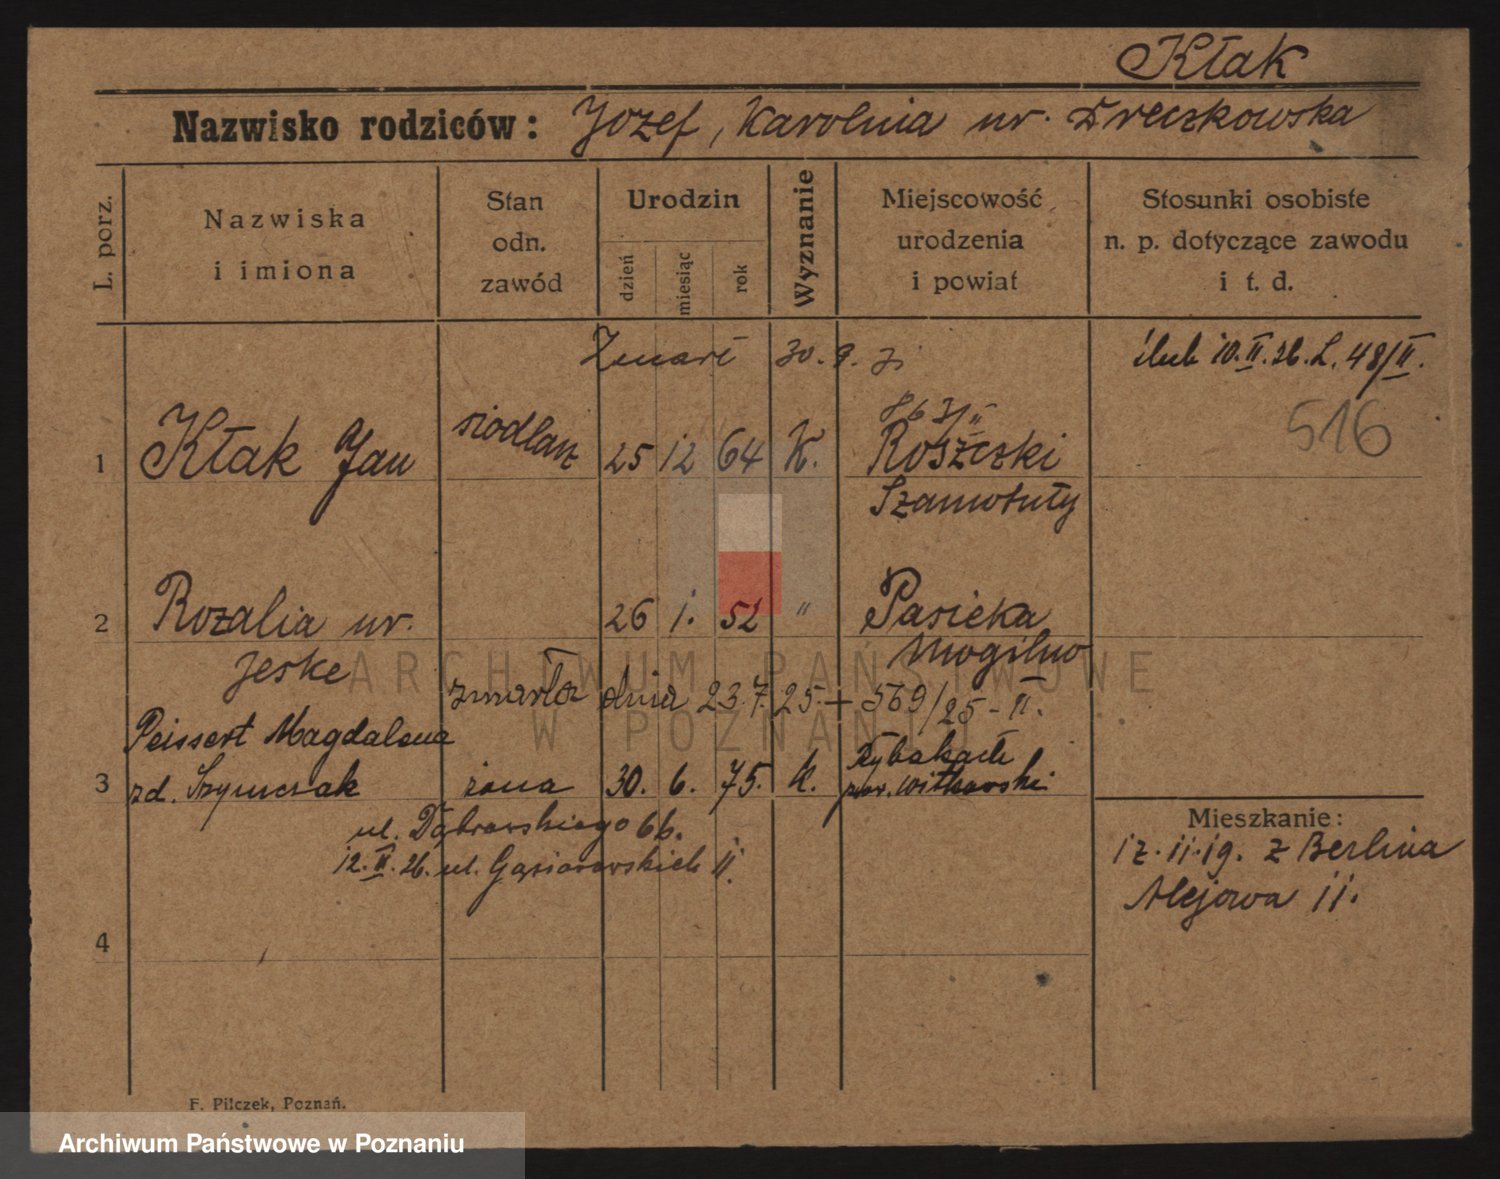 Kłak
Nazwisko rodziców: Jozef, Karolnia ur. Dreczkowska
L. porz.
Nazwiska
i imiona
Stan
odn.
zawód
Urodzin
dzień
miesiąc
rok
Wyznanie
Miejscowość
urodzenia
i powiat
Stosunki osobiste
n. p. dotyczące zawodu
i t. d.
Zmarł 30. 9. 31
ślub 10.II.26. L. 48/II.
516
1 Kłak Jan siodlarz 25 12 64 K. Roszczki
Szamotuły
2 Rozalia ur. 26 1. 52 " Pasieka
Jeske Mogilno
zmarła dnia 23.7.25.+ 569/25-II.
Peissert Magdalena
3 zd. Szymczak żona 30. 6. 75. k.
pow. witkowski
ul. Dąbrowskiego 66.
12.II.26. ul. Gąsiorowskich 11.
Mieszkanie:
12.11.19. z Berlina
Alejowa 11.
4
F. Pilczek, Poznań.
ARCHIWUM PAŃSTWOWE
W POZNANIU
Archiwum Państwowe w Poznaniu